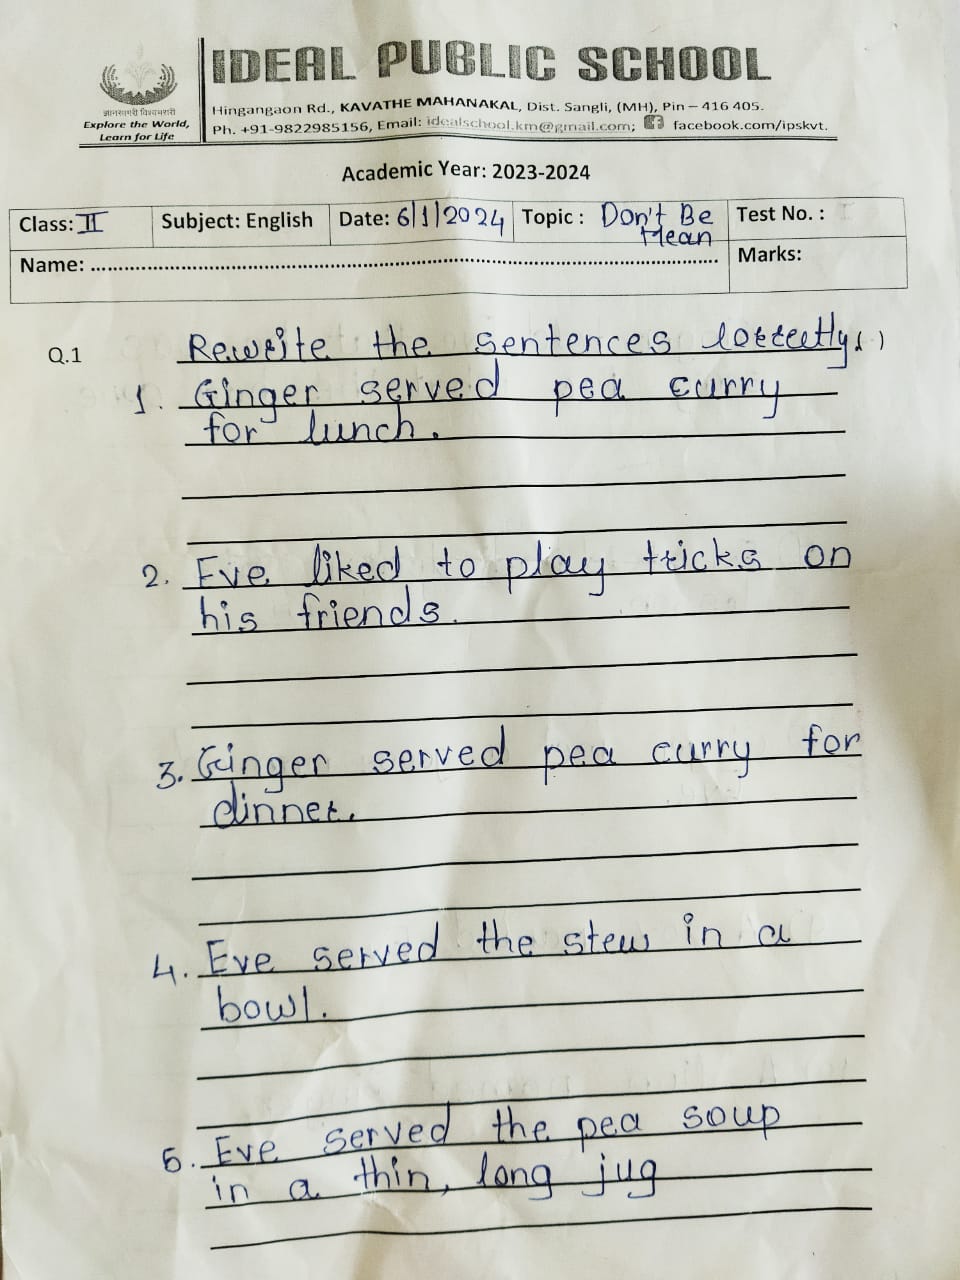 IDEAL PUBLIC SCHOOL
Hingangaon Rd., KAVATHE MAHANAKAL, Dist. Sangli, (MH), Pin – 416 405.
Explore the World,
Learn for Life
Ph. +91-9822985156, Email: idealschool.km@gmail.com; facebook.com/ipskvt.
Academic Year: 2023-2024
Class: II Subject: English Date: 6/1/2024 Topic : Don't Be Mean Test No. : I
Name: Marks:
Q.1 Rewrite the sentences correctly. ( )
1. Ginger served pea curry
for lunch.
2. Eve liked to play tricks on
his friends.
3. Ginger served pea curry for
dinner.
4. Eve served the stew in a
bowl.
5. Eve served the pea soup
in a thin, long jug